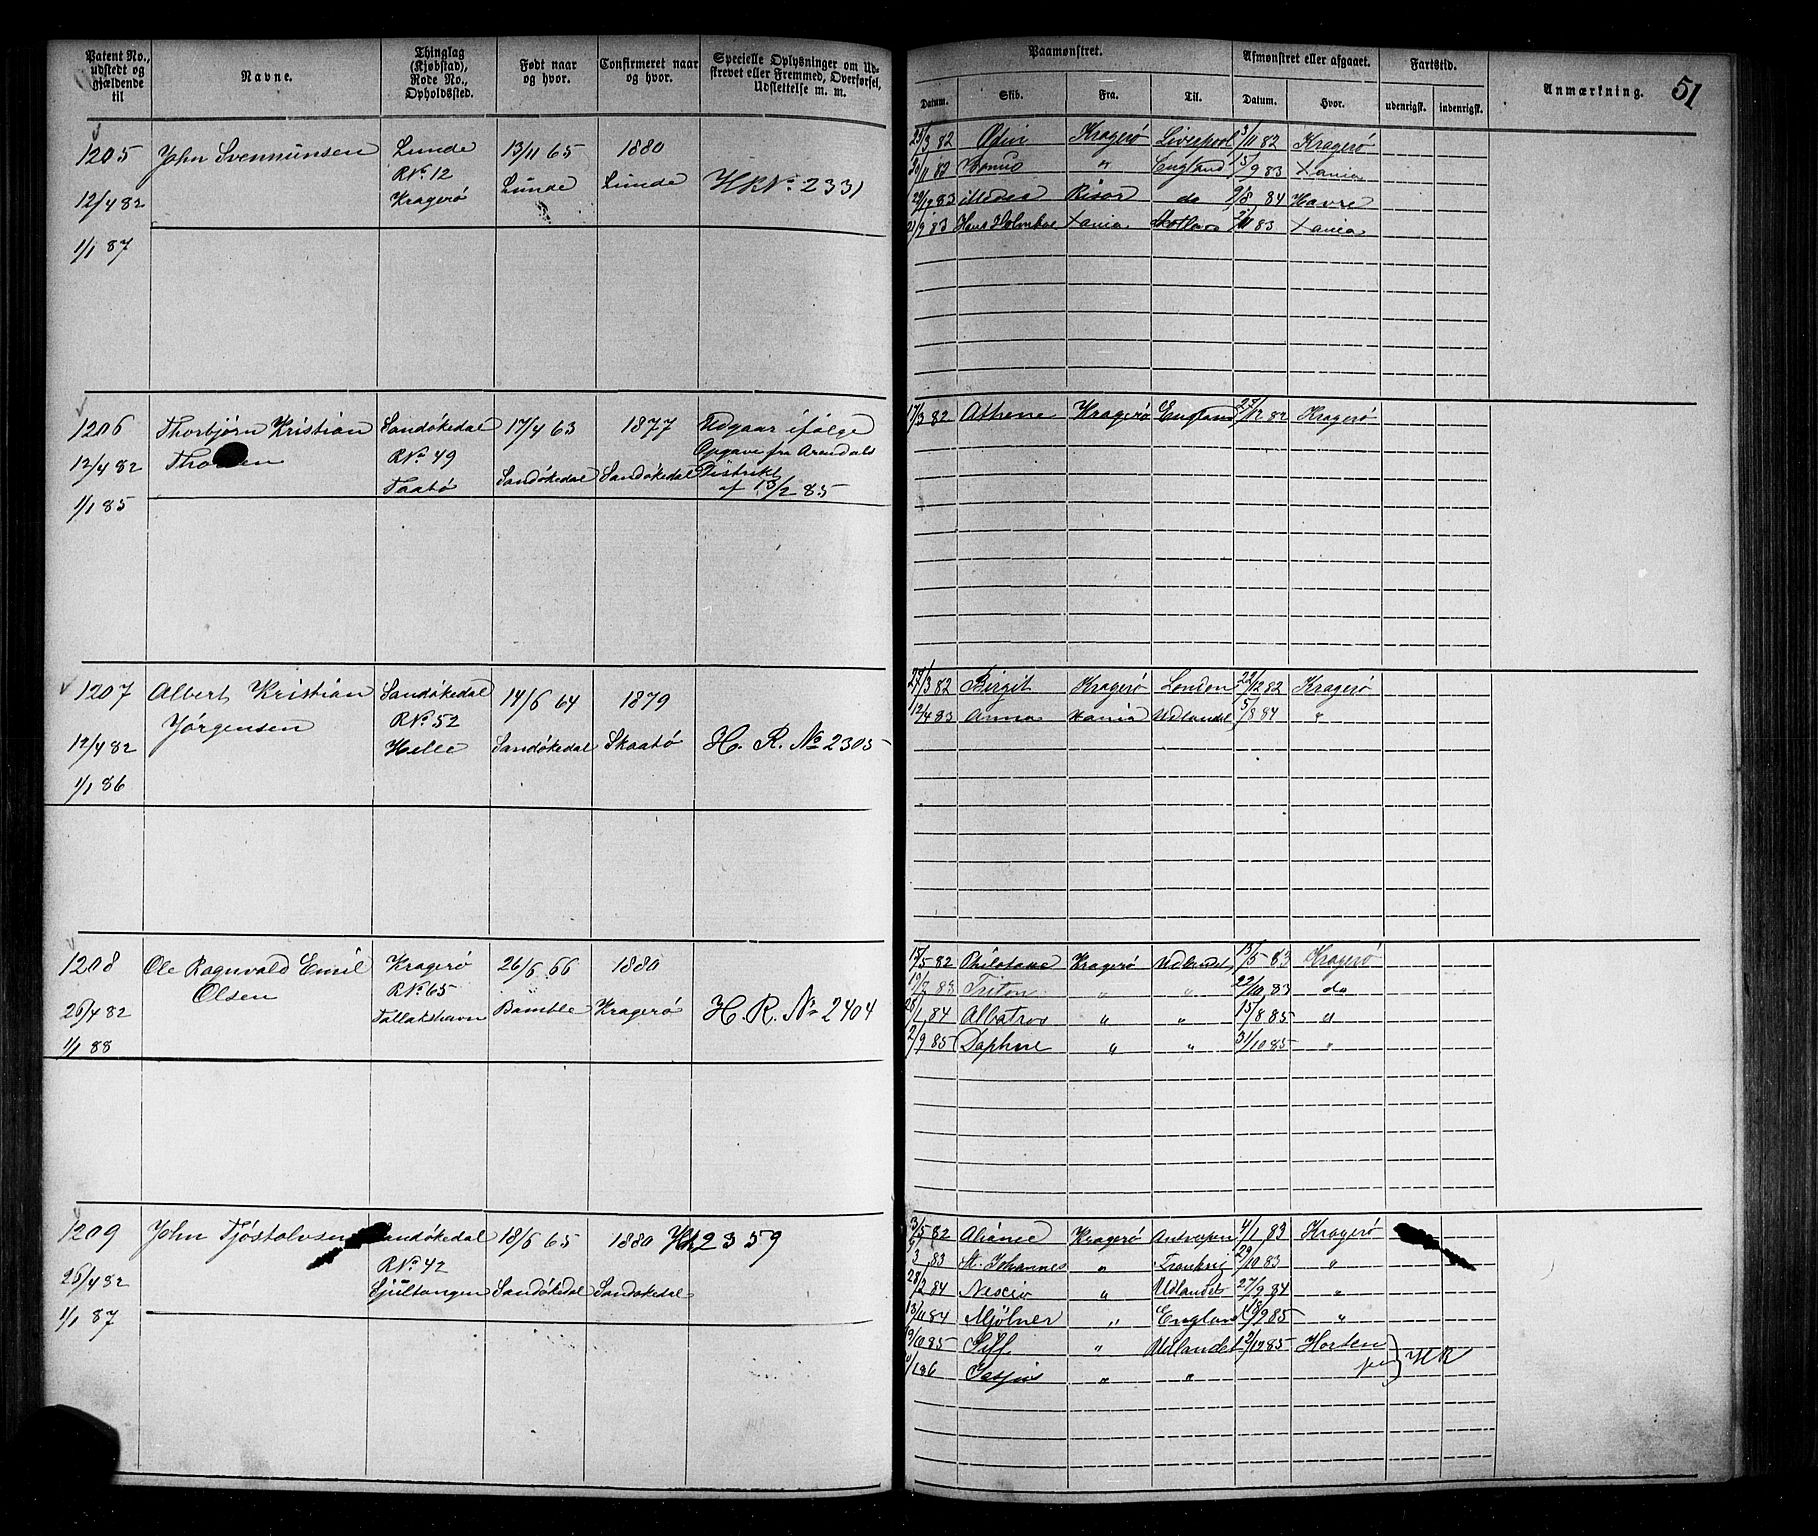 Patent No., udstedt og gjældende til
Navne.
Thinglag (Kjøbstad), Rode No., Opholdssted.
Født naar og hvor.
Confirmeret naar og hvor.
Specielle Oplysninger om Udskrevet eller Fremmed, Overførsel, Udslettelse m. m.
Paamønstret.
Afmønstret eller afgaaet.
Fartstid.
Anmærkning.
51
Datum. Skib. Fra. Til. Datum. Hvor. udenrigsk. indenrigsk.
1205 John Svennunsen Lunde 13/11 65 1880
RNo 12
12/4 82 Kragerø Lunde Lunde HRNo 2331
1/1 87
25/3 82 Kragerø Liverpool 3/11 82 Kragerø
11 82 Venus " England 15/9 83 Xania
83 Risør do 84 Havre
83 Xania 83 Xania
1206 Thorbjørn Kristian Sandøkedal 17/4 63 1877 Udgaar ifølge
12/4 82 RNo 49 Opgave fra Arendals
Taatø Sandøkedal Sandøkedal Distrikt
1/1 85 af 13/2 85
17/3 82 Athene Kragerø England 27/12 82 Kragerø
1207 Albert Kristian Sandøkedal 14/6 64 1879
Jørgensen RNo 52
12/4 82 Helle Sandøkedal Skaatø H. R. No 2305
1/1 86
27/3 82 Birgit Kragerø London 22/12 82 Kragerø
12/4 83 Anna Xania Udlandet 5/8 84 "
1208 Ole Ragnvald Emil Kragerø 26/6 66 1880
Olsen RNo 65
26/4 82 Tallakshavn Bamble Kragerø H. R. No 2404
1/1 88
17/5 82 Kragerø Udlandet 13/5 83 Kragerø
83 Triton " " 22/10 83 do
28/1 84 Albatros " " 15/8 85 "
2/9 85 Daphne " " 31/10 85 "
1209 John Tjøstolvsen Sandøkedal 18/6 65 1880 HR 2359
RNo 42
26/4 82 Sandøkedal Sandøkedal
1/1 87
3/5 82 Aliance Kragerø Antverpen 4/1 83 Kragerø
3 83 St. Johannes " 29/10 83 "
28/2 84 " Udlandet 27/9 84 "
13/11 84 Mjølner " England 18/9 85 "
19/10 85 " Udlandet 2/12 85 Horten
4/1 86 " " HR